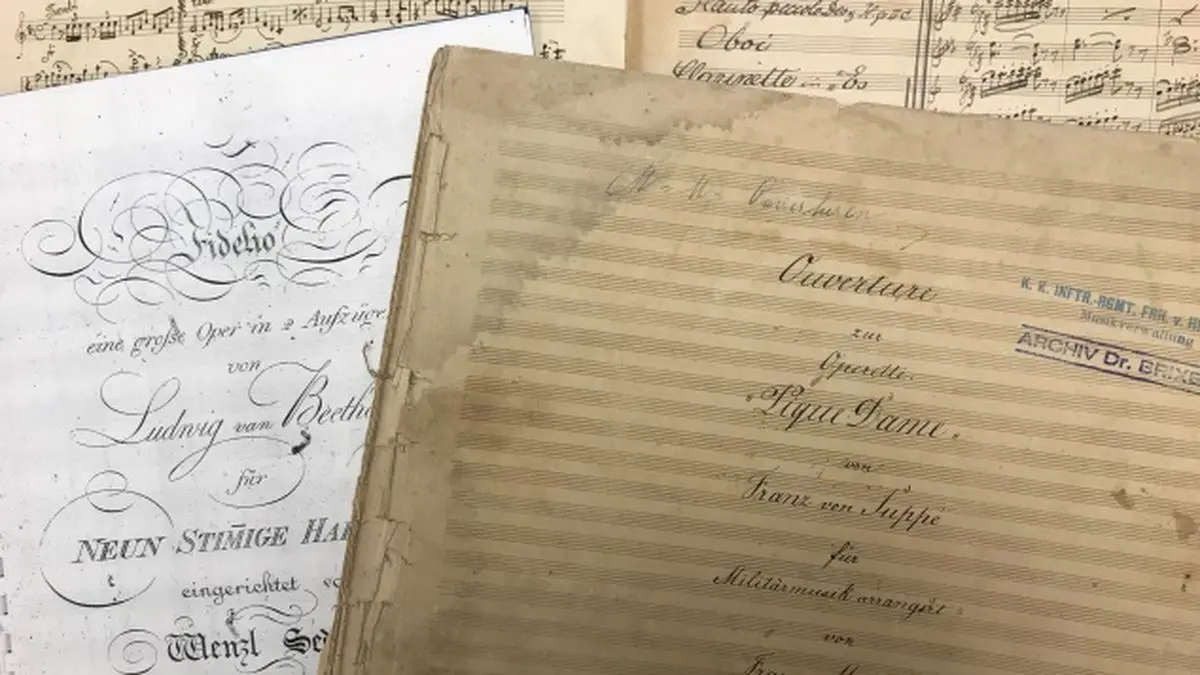 Flauto piccolo
Oboi
Clarinette in Es
Fidelio
eine große Oper in 2 Aufzüge
von
Ludwig van Beeth
für
NEUN STIM̄IGE HAR
eingerichtet vo
Wenzl Sed
Ouverturen
Ouverture
zur
Operette.
„Pique Dame„
von
Franz von Suppé
für
Militärmusik arrangirt
von
Franz
K. K. INFTR.-RGMT. FRH. v. H
Musikverwaltung
ARCHIV Dr. BRIXE